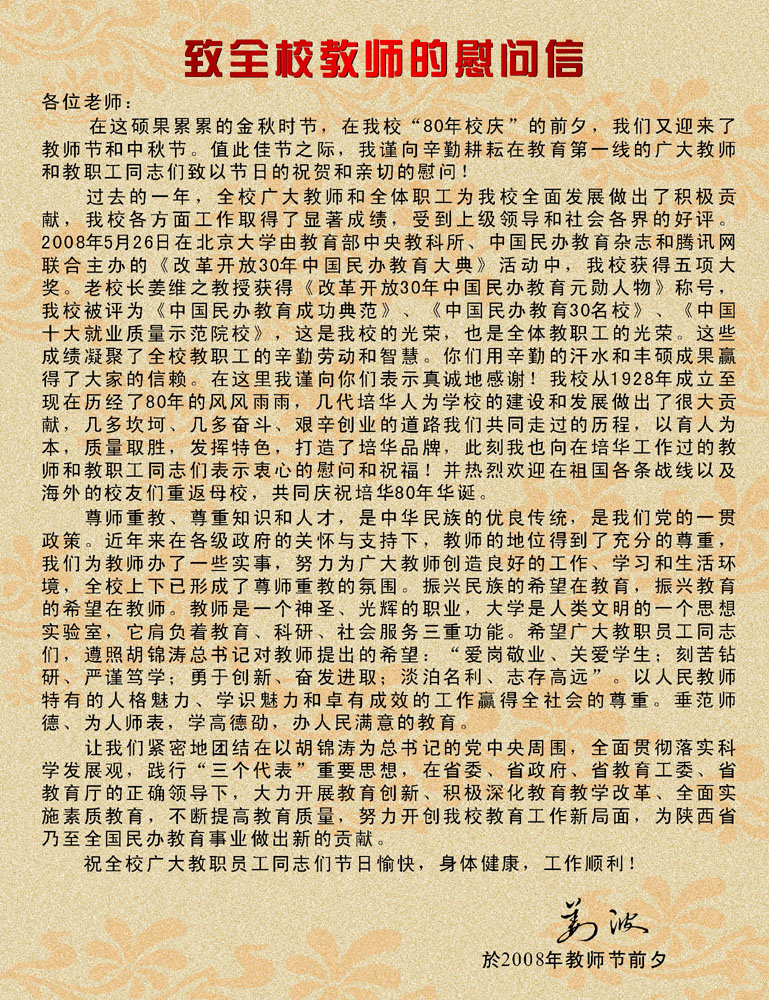 致全校教师的慰问信
各位老师：
在这硕果累累的金秋时节，在我校“80年校庆”的前夕，我们又迎来了
教师节和中秋节。值此佳节之际，我谨向辛勤耕耘在教育第一线的广大教师
和教职工同志们致以节日的祝贺和亲切的慰问！
过去的一年，全校广大教师和全体职工为我校全面发展做出了积极贡
献，我校各方面工作取得了显著成绩，受到上级领导和社会各界的好评。
2008年5月26日在北京大学由教育部中央教科所、中国民办教育杂志和腾讯网
联合主办的《改革开放30年中国民办教育大典》活动中，我校获得五项大
奖。老校长姜维之教授获得《改革开放30年中国民办教育元勋人物》称号，
我校被评为《中国民办教育成功典范》、《中国民办教育30名校》、《中国
十大就业质量示范院校》，这是我校的光荣，也是全体教职工的光荣。这些
成绩凝聚了全校教职工的辛勤劳动和智慧。你们用辛勤的汗水和丰硕成果赢
得了大家的信赖。在这里我谨向你们表示真诚地感谢！我校从1928年成立至
现在历经了80年的风风雨雨，几代培华人为学校的建设和发展做出了很大贡
献，几多坎坷、几多奋斗、艰辛创业的道路我们共同走过的历程，以育人为
本，质量取胜，发挥特色，打造了培华品牌，此刻我也向在培华工作过的教
师和教职工同志们表示衷心的慰问和祝福！并热烈欢迎在祖国各条战线以及
海外的校友们重返母校，共同庆祝培华80年华诞。
尊师重教、尊重知识和人才，是中华民族的优良传统，是我们党的一贯
政策。近年来在各级政府的关怀与支持下，教师的地位得到了充分的尊重，
我们为教师办了一些实事，努力为广大教师创造良好的工作、学习和生活环
境，全校上下已形成了尊师重教的氛围。振兴民族的希望在教育，振兴教育
的希望在教师。教师是一个神圣、光辉的职业，大学是人类文明的一个思想
实验室，它肩负着教育、科研、社会服务三重功能。希望广大教职员工同志
们，遵照胡锦涛总书记对教师提出的希望：“爱岗敬业、关爱学生；刻苦钻
研、严谨笃学；勇于创新、奋发进取；淡泊名利、志存高远”。以人民教师
特有的人格魅力、学识魅力和卓有成效的工作赢得全社会的尊重。垂范师
德、为人师表，学高德劭，办人民满意的教育。
让我们紧密地团结在以胡锦涛为总书记的党中央周围，全面贯彻落实科
学发展观，践行“三个代表”重要思想，在省委、省政府、省教育工委、省
教育厅的正确领导下，大力开展教育创新、积极深化教育教学改革、全面实
施素质教育，不断提高教育质量，努力开创我校教育工作新局面，为陕西省
乃至全国民办教育事业做出新的贡献。
祝全校广大教职员工同志们节日愉快，身体健康，工作顺利！
姜波
於2008年教师节前夕